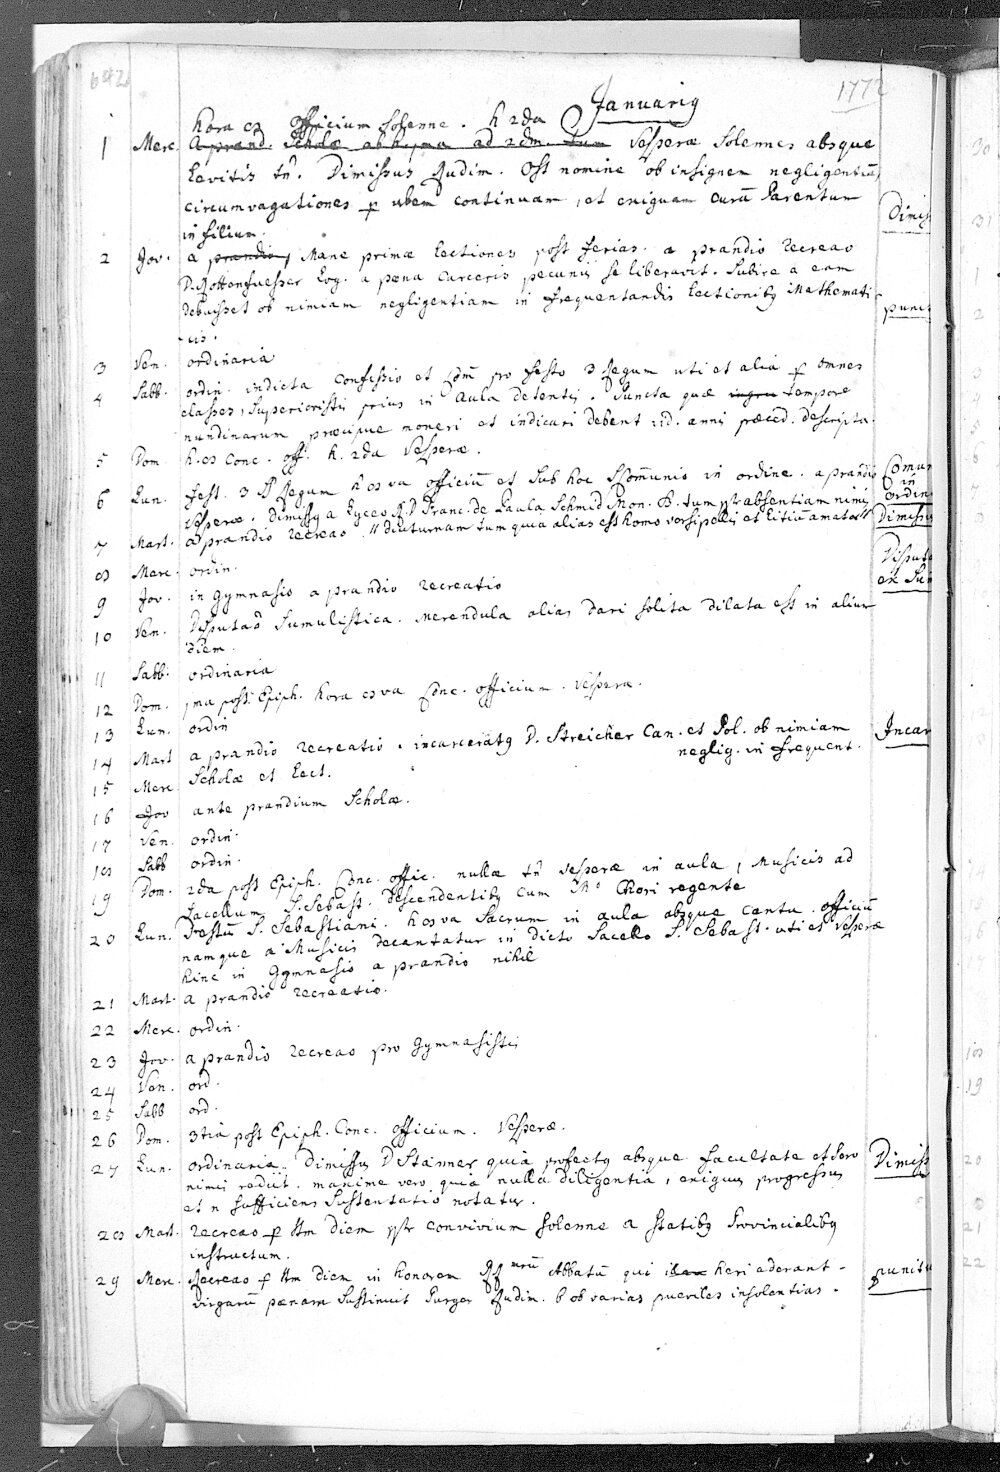 642
Januarig
1772
hora 8 officium solenne. h 2da
1 Merc. a prand. Scholæ ab hspma ad 2dm tum Vesperæ Solennes absque
Levitis tñ. Dimissus Rudim. Ost nomine ob insignem negligentiã,
circumvagationes p urbem continuam, et exiguam curã Parentum
in filium.
Dimis
2 Jov. a prandio, Mane primæ lectiones post ferias. a prandio recreaõ
D. Rottenfuesser Log. a pæna Carceris pecuniis se liberavit. Subire a eam
debuisset ob nimiam negligentiam in frequentandis lectionibg Mathemati
cis.
punit
3 Ven. ordinaria
4 Sabb. ordin. indicta confessio et com pro festo 3 Regum uti et alia p omnes
classes, Superioristis prius in Aula detentis. Puncta quæ tempore
nundinarum præcipue moneri et indicari debent vid. anni præced. descripta.
5 Dom h. 8 Conc. off. h. 2da Vesperæ.
6 Lun. Fest. 3 SS Regum h 8va officiũ et sub hoc Communio in ordine. a prandio
Vesperæ. Dimissg a Lyceo R.D Franc. de Paula Schmid Mon. B. tum ptr absentiam nimis
Comun
in
ordin
7 Mart. a prandio recreaõ. // diuturnam tum quia alias est homo versipellis et litiũ amator //
Dimissu
8 Merc. ordin.
9 Jov. in gymnasio a prandio recreatio
Disputa
ex Sum
10 Ven. Disputaõ Sumulistica. Merendula alias dari solita dilata est in aliũ
diem.
11 Sabb. ordinaria
12 Dom. 1ma post Epiph. hora 8va Conc. officium. Vespera.
13 Lun. ordin
14 Mart a prandio recreatio. incarceratg D. Streicher Can. et Pol. ob nimiam
neglig. in frequent.
Incar
15 Merc Scholæ et Lect.
16 Jov ante prandium Scholæ.
17 Ven. ordin.
18 Sabb ordin.
19 Dom. 2da post Epiph. Conc. offic. nullæ tñ Vesperæ in aula, Musicis ad
Sacellum S. Sebast. descendentibg cum Chori regente
20 Lun. Festũ S. Sebastiani. h 8va Sacrum in aula absque cantu. officiũ
namque a Musicis decantatur in dicto Sacello S. Sebast. uti et Vesperæ
hinc in Gymnasio a prandio nihil
21 Mart. a prandio recreatio.
22 Merc. ordin.
23 Jov. a prandio recreaõ pro Gymnasistis
24 Ven. ord.
25 Sabb ord.
26 Dom. 3tia post Epiph. Conc. officium. Vesperæ.
27 Lun. ordinaria. Dimissg D Stainer quia profectg absque facultate et sero
nimis rediit. maxime vero, quia nulla diligentia, exiguus progressus
et n sufficiens Sustentatio notatur.
Dimiss
28 Mart. recreaõ p ttm diem ptr convivium solenne a Statibg Provincialibg
instructum.
29 Merc. Recreaõ p ttm diem in honorem RR Abbatũ qui heri aderant.
virgarũ pænam sustinuit Purger Rudim. b ob varias pueriles insolentias.
punitu